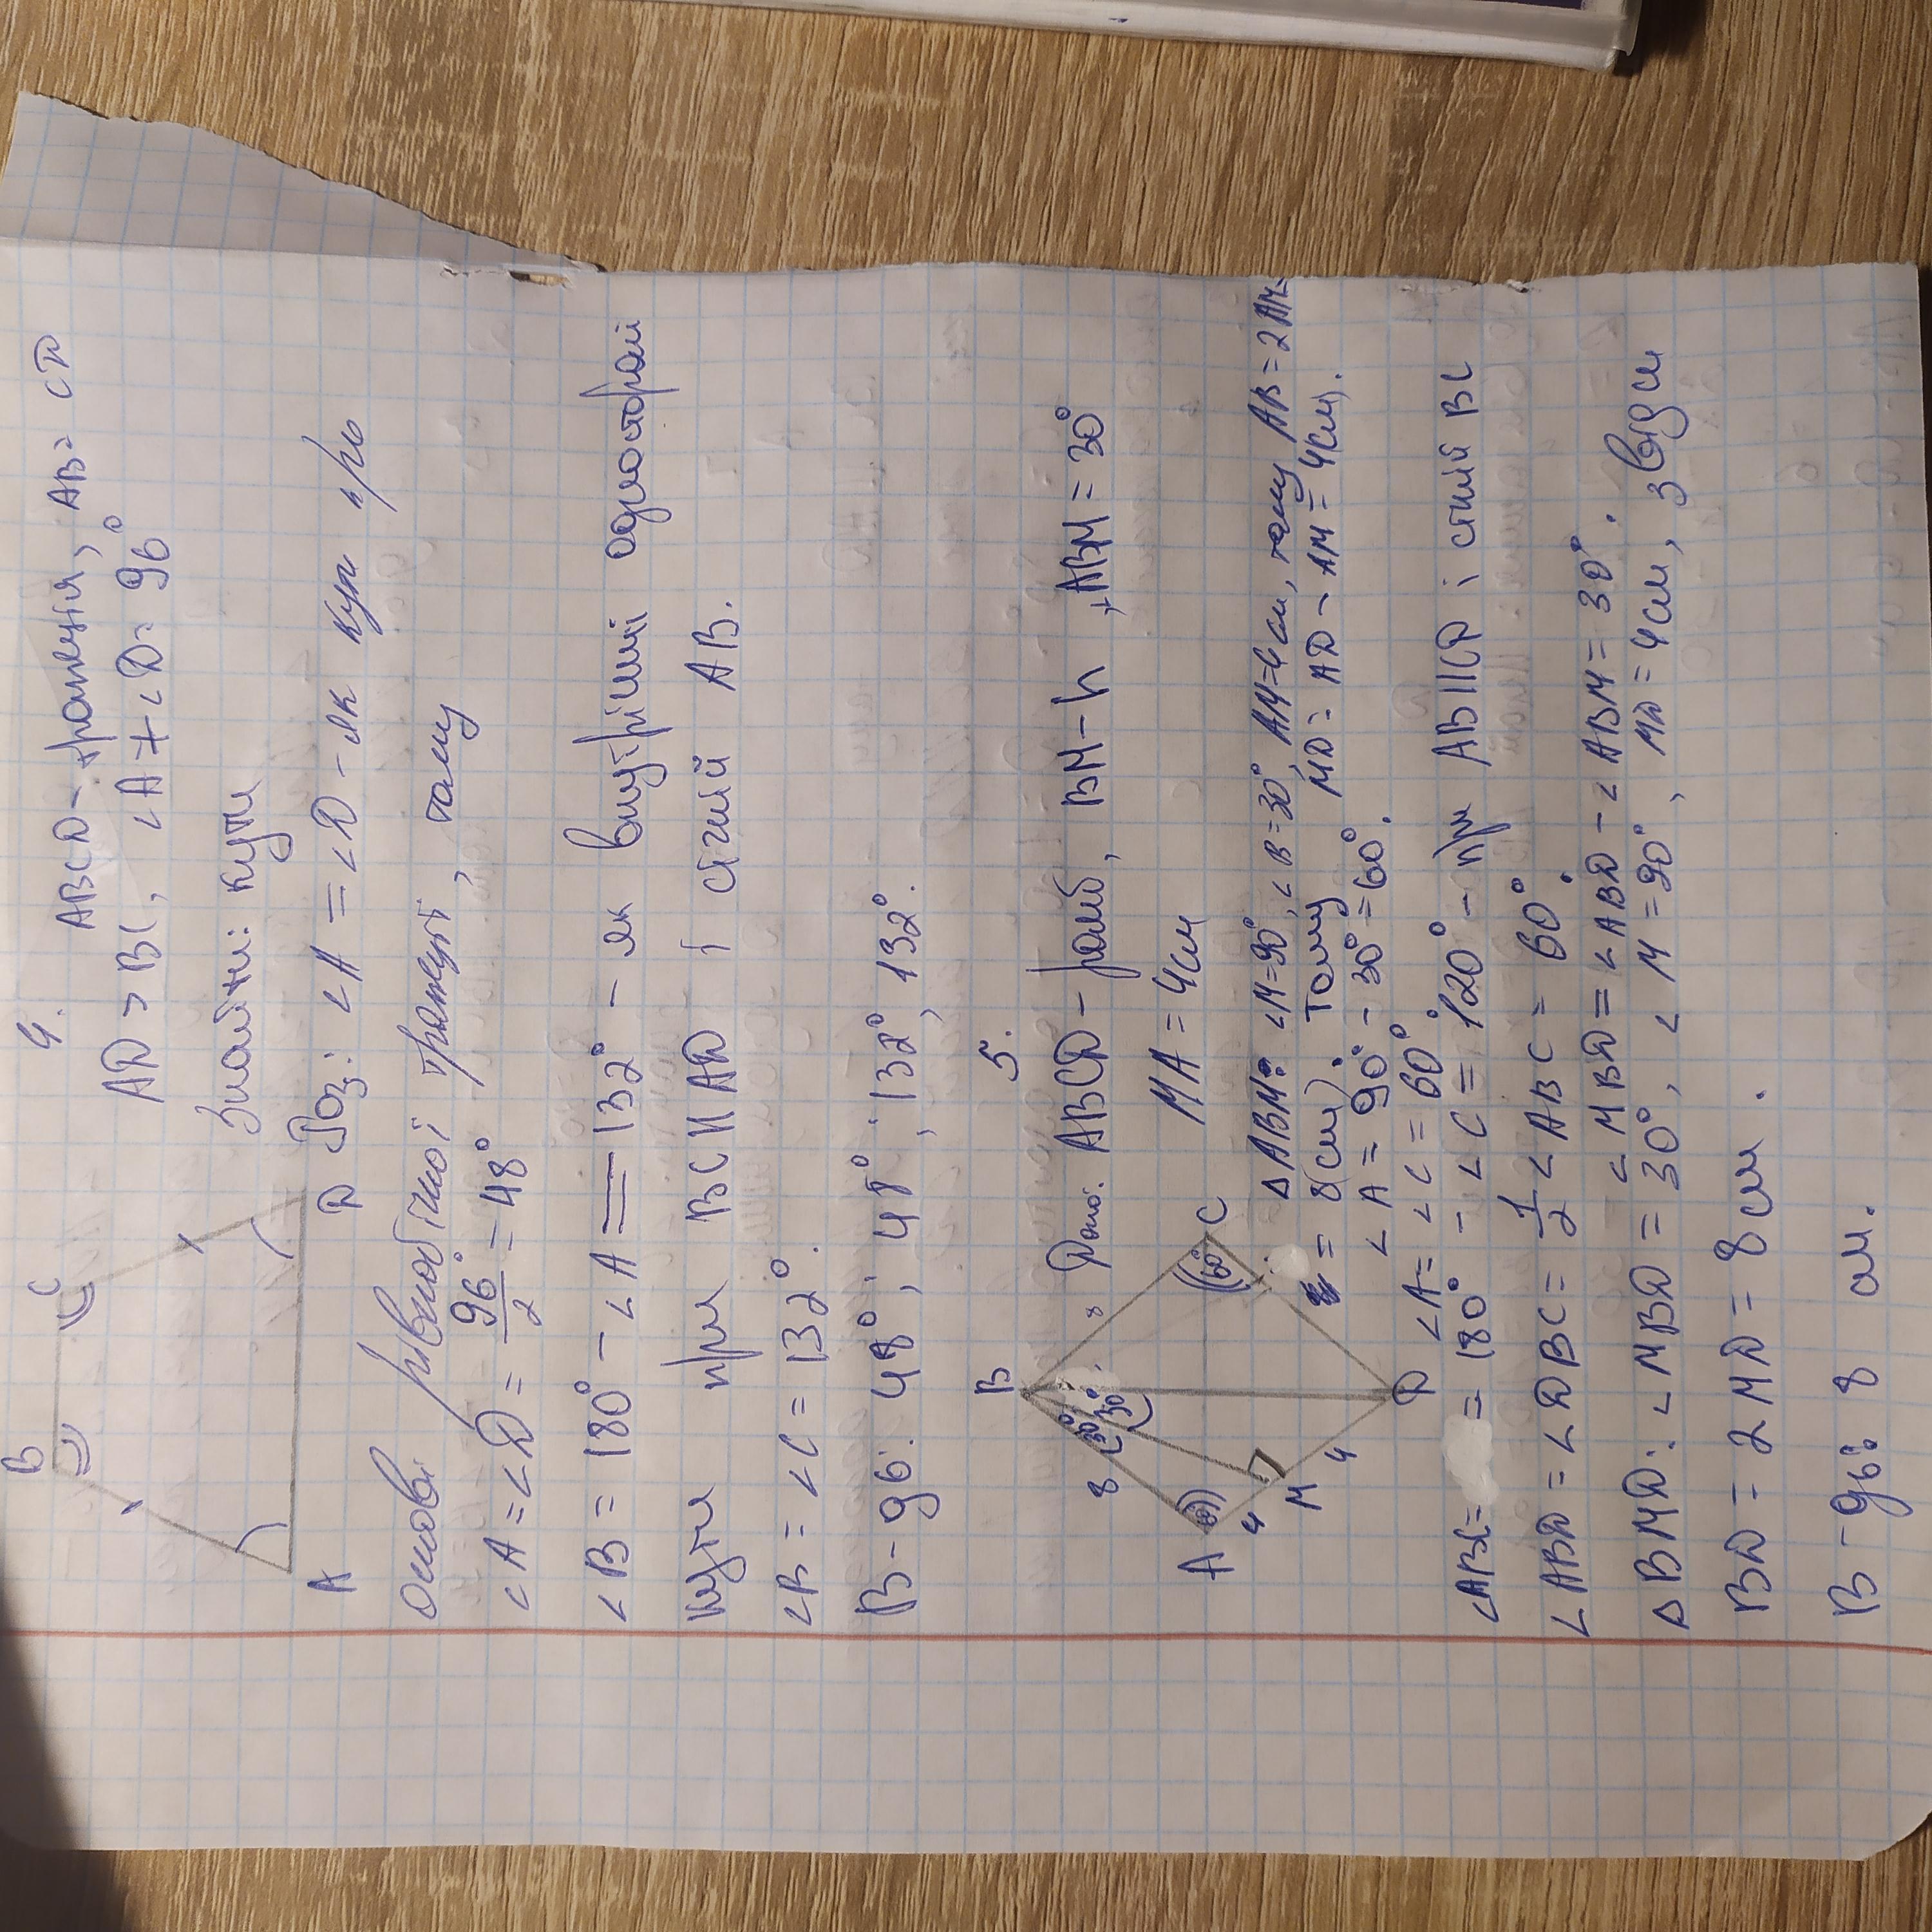 4.
ABCD – трапеція, AB = CD
AD > BC, ∠A + ∠D = 96°
Знайти: кути
B
C
A
D
Роз: ∠A = ∠D – як кути при
основі рівнобічної трапеції, тому
∠A = ∠D = 96°/2 = 48°
∠B = 180° – ∠A = 132° – як внутрішні односторонні
кути при BC || AD і січній AB.
∠B = ∠C = 132°.
В-дь: 48°; 48°; 132°, 132°.
5.
Дано: ABCD – ромб, BM – h, ∠ABM = 30°
MA = 4см
B
8
8
30°
30°
A
60°
60°
C
4
M
4
D
△ABM: ∠M = 90°, ∠B = 30°, AM = 4 см, тому AB = 2AM =
= 8(см). Тому MD = AD – AM = 4(см).
∠A = 90° – 30° = 60°.
∠A = ∠C = 60°.
∠ABC = = 180° – ∠C = 120° – при AB || CD і січній BC
∠ABD = ∠DBC = 1/2 ∠ABC = 60°.
∠MBD = ∠ABD – ∠ABM = 30°.
△BMD: ∠MBD = 30°, ∠M = 90°, MD = 4 см, звідси
BD = 2MD = 8 см.
В-дь: 8 см.